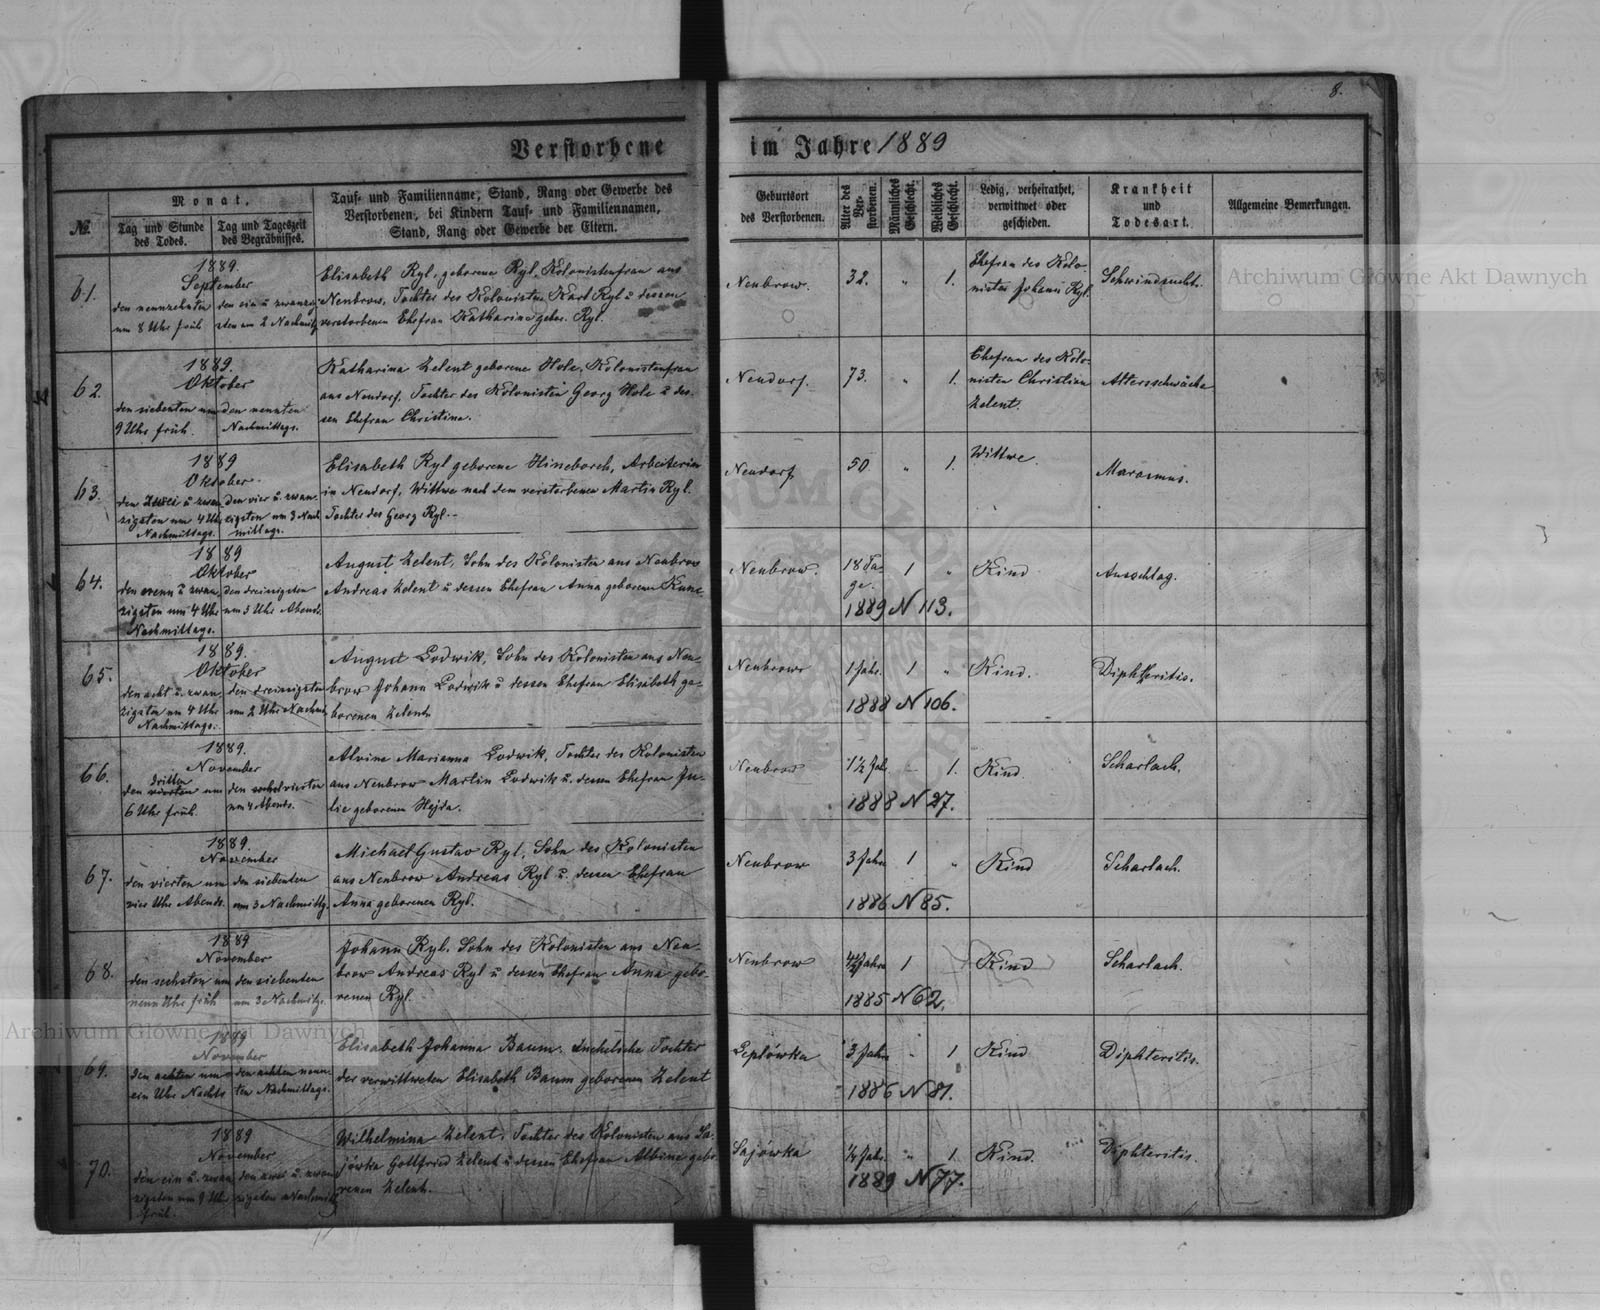 8.
Verstorbene im Jahre 1889
№.
Monat.
Tag und Stunde des Todes.
Tag und Tageszeit des Begräbnisses.
Tauf- und Familienname, Stand, Rang oder Gewerbe des
Verstorbenen, bei Kindern Tauf- und Familiennamen,
Stand, Rang oder Gewerbe der Eltern.
Geburtsort
des Verstorbenen.
Alter des Verstorbenen.
Männliches Geschlecht.
Weibliches Geschlecht.
Ledig, verheirathet,
verwittwet oder
geschieden.
Krankheit
und
Todesart.
Allgemeine Bemerkungen.
61.
1889.
September
den neunzehnten
um 8 Uhr früh
den ein u. zwanzig
sten um 2 Nachmittg
Elisabeth Ryl, geborene Ryl, Kolonistenfrau aus
Neubrow, Tochter des Kolonisten Karl Ryl u dessen
verstorbenen Ehefrau Katharina gebor. Ryl.
Neubrow.
32.
"
1.
Ehefrau des Kolo-
nisten Johann Ryl.
Schwindsucht.
62.
1889.
Oktober
den siebenten um
9 Uhr früh.
den neunten
Nachmittags.
Katharina Zelent geborene Hole, Kolonistenfrau
aus Neudorf, Tochter des Kolonisten Georg Hole u des-
sen Ehefrau Christine.
Neudorf.
73.
"
1.
Ehefrau des Kolo-
nisten Christian
Zelent.
Altersschwäche
63.
1889
Oktober
den zwei u zwan
zigsten um 4 Uhr
Nachmittags.
den vier u. zwan-
zigsten um 3 Nach
mittags.
Elisabeth Ryl geborene Hineborch, Arbeiterin
in Neudorf, Wittwe nach dem verstorbenen Martin Ryl.
Tochter des Georg Ryl.-
Neudorf
50.
"
1.
Wittwe.
Marasmus.
64.
1889
Oktober
den neun u zwan
zigsten um 4 Uhr
Nachmittags.
den dreissigsten
um 3 Uhr Abend.
August Zelent, Sohn des Kolonisten aus Neubrow
Andreas Zelent u dessen Ehefrau Anna geborene Kunz
Neubrow.
18 Ta-
ge.
1
"
1889 N 113.
Kind
Ausschlag.
65.
1889.
Oktober
den acht u. zwan
zigsten um 4 Uhr
Nachmittags.
den dreissigsten
um 2 Uhr Nachm.
August Lodwik, Sohn des Kolonisten aus Neu-
brow Johann Lodwik u dessen Ehefrau Elisabeth ge-
borenen Zelent
Neubrow
1 Jahr.
1
"
1888 N 106.
Kind.
Diphtheritis.
66.
1889.
November
dritten
den vierten um
6 Uhr früh.
den vierten
um 4 Abends.
Alvine Marianna Lodwik, Tochter des Kolonisten
aus Neubrow Martin Lodwik u. dessen Ehefrau Ju-
lie geborenen Hejda.
Neubrow
1½ Jah
1.
1888 N 27.
Kind
Scharlach.
67.
1889.
November
den vierten um
vier Uhr Abends.
den siebenten
um 3 Nachmittg.
Michael Gustav Ryl, Sohn des Kolonisten
aus Neubrow Andreas Ryl u. dessen Ehefrau
Anna geborenen Ryl.
Neubrow
3 Jahre
1
"
1886 N 85.
Kind
Scharlach.
68.
1889
November
den sechsten um
neun Uhr früh
den siebenten
um 3 Nachmittg.
Johann Ryl, Sohn des Kolonisten aus Neu-
brow Andreas Ryl u dessen Ehefrau Anna gebo-
renen Ryl.
Neubrow
Jahre
1
1885 N 62.
Kind
Scharlach.
69.
1889
November
den achten um
ein Uhr Nachts
Nachmittags.
Elisabeth Johanna Baum. Tochter
der verwittweten Elisabeth Baum geborenen Zelent
Leptówka
3 Jahre
"
1
1886 N 81.
Kind
Diphteritis.
70.
1889
November
den ein u. zwan
zigsten um 9 Uhr
früh.
den zwei u. zwan
zigsten Nachmitt
Wilhelmina Zelent, Tochter des Kolonisten aus Sa-
jówka Gottfried Zelent u dessen Ehefrau Albine gebo-
renen Zelent.
Sajówka
½ Jahr.
"
1.
1889 N 77.
Kind.
Diphteritis.
Archiwum Główne Akt Dawnych
Archiwum Główne Akt Dawnych